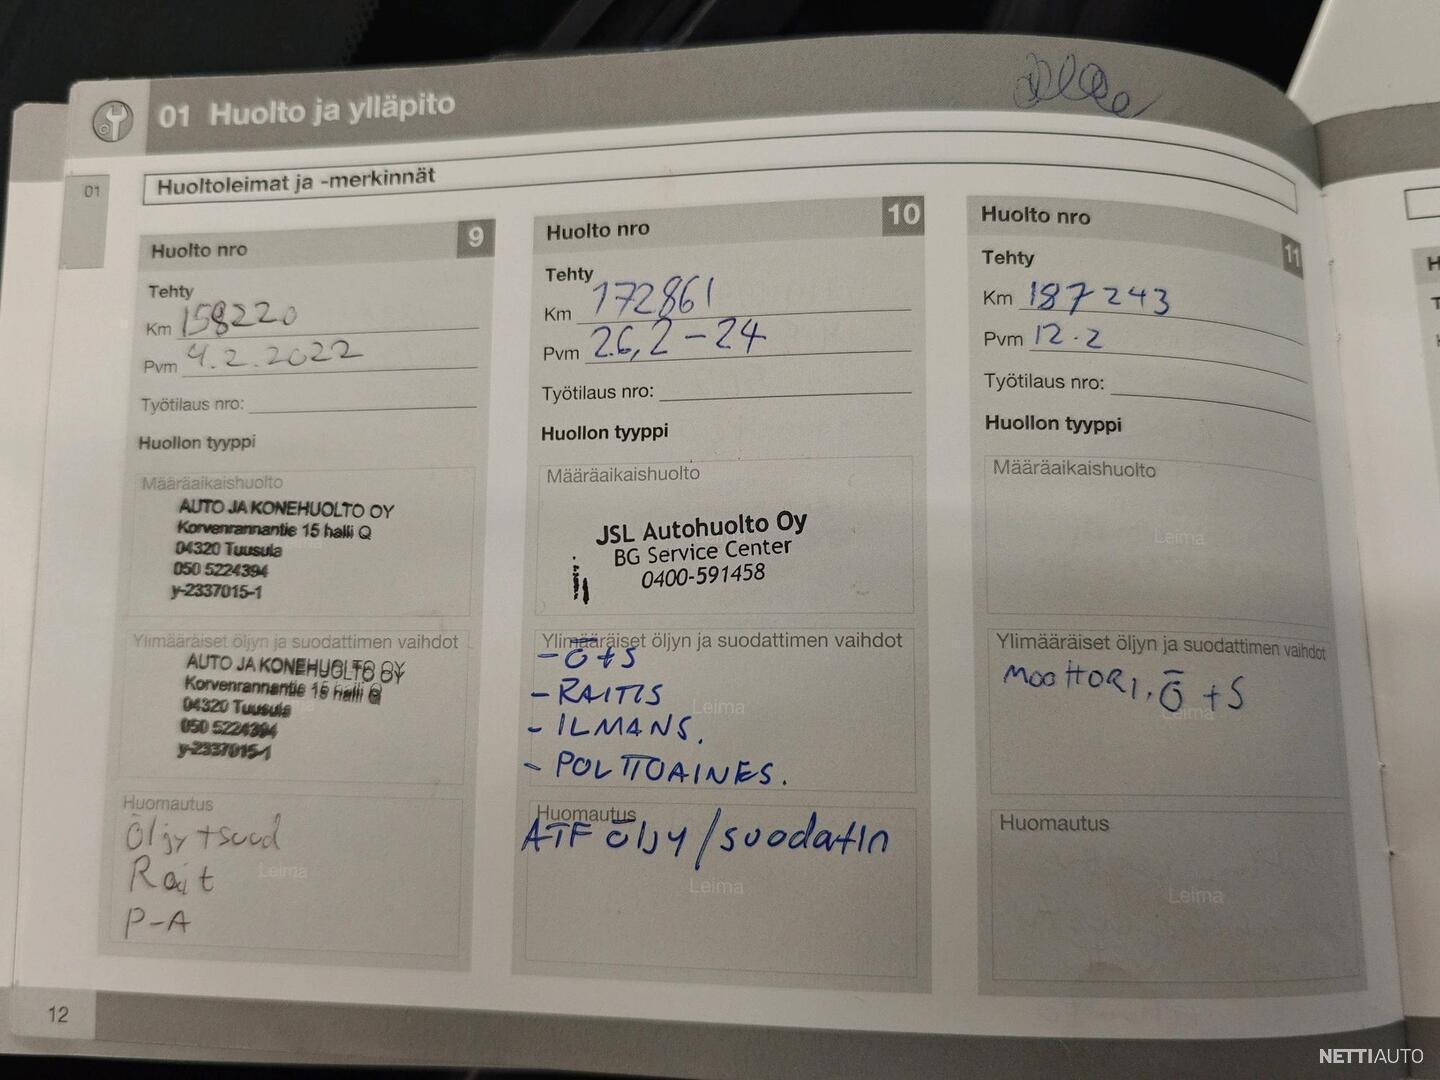 01 Huolto ja ylläpito
01
Huoltoleimat ja -merkinnät
Huolto nro 9
Tehty
Km 158220
Pvm 4.2.2022
Työtilaus nro:
Huollon tyyppi
Määräaikaishuolto
AUTO JA KONEHUOLTO OY
Korvenrannantie 15 halli Q
04320 Tuusula
050 5224394
y-2337015-1
Ylimääräiset öljyn ja suodattimen vaihdot
AUTO JA KONEHUOLTO OY
Korvenrannantie 15 halli Q
04320 Tuusula
050 5224394
y-2337015-1
Huomautus
Öljy + suod
Leima
Rait
P-A
Huolto nro 10
Tehty
Km 172861
Pvm 26,2-24
Työtilaus nro:
Huollon tyyppi
Määräaikaishuolto
JSL Autohuolto Oy
BG Service Center
0400-591458
Ylimääräiset öljyn ja suodattimen vaihdot
- Ö+S
- RAITIS
Leima
- ILMANS.
- POLTTOAINES.
Huomautus
ATF ÖLJY/suodatin
Leima
Huolto nro 11
Tehty
Km 187243
Pvm 12.2
Työtilaus nro:
Huollon tyyppi
Määräaikaishuolto
Leima
Ylimääräiset öljyn ja suodattimen vaihdot
MOOTTORI. Ö+S
Leima
Huomautus
Leima
12
NETTIAUTO